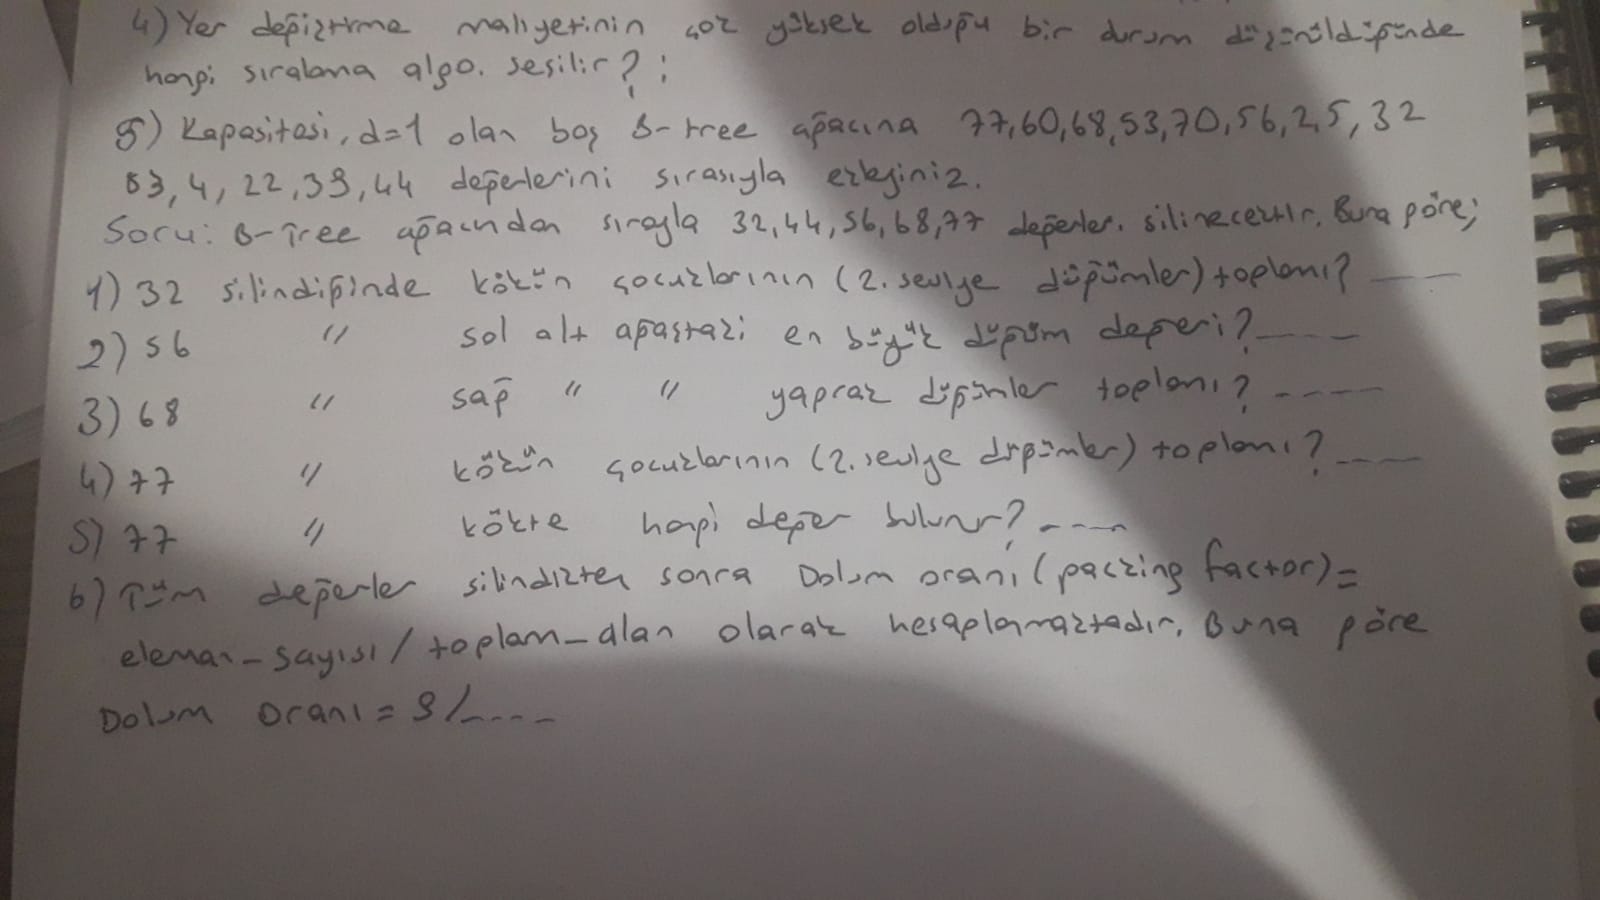 4) Yer değiştirme maliyetinin çok yüksek olduğu bir durum düşünüldüğünde
hangi sıralama algo. seçilir? :
5) Kapasitesi, d=1 olan boş B-tree ağacına 77,60,68,53,70,56,2,5,32
83, 4, 22, 39, 44 değerlerini sırasıyla ekleyiniz.
Soru: B-Tree ağacından sırayla 32,44,56,68,77 değerler. silinecektir. Buna göre;
1) 32 silindiğinde kökün çocuklarının (2. seviye düğümler) toplamı? ----
2) 56 " sol alt ağaçtaki en büyük düğüm değeri? ----
3) 68 " sağ " " yaprak düğümler toplamı? ----
4) 77 " kökün çocuklarının (2. seviye düğümler) toplamı? ----
5) 77 " kökte hangi değer bulunur? ----
6) Tüm değerler silindikten sonra Dolum oranı (packing factor)=
eleman_sayısı / toplam_alan olarak hesaplanmaktadır. Buna göre
Dolum oranı = 9/----